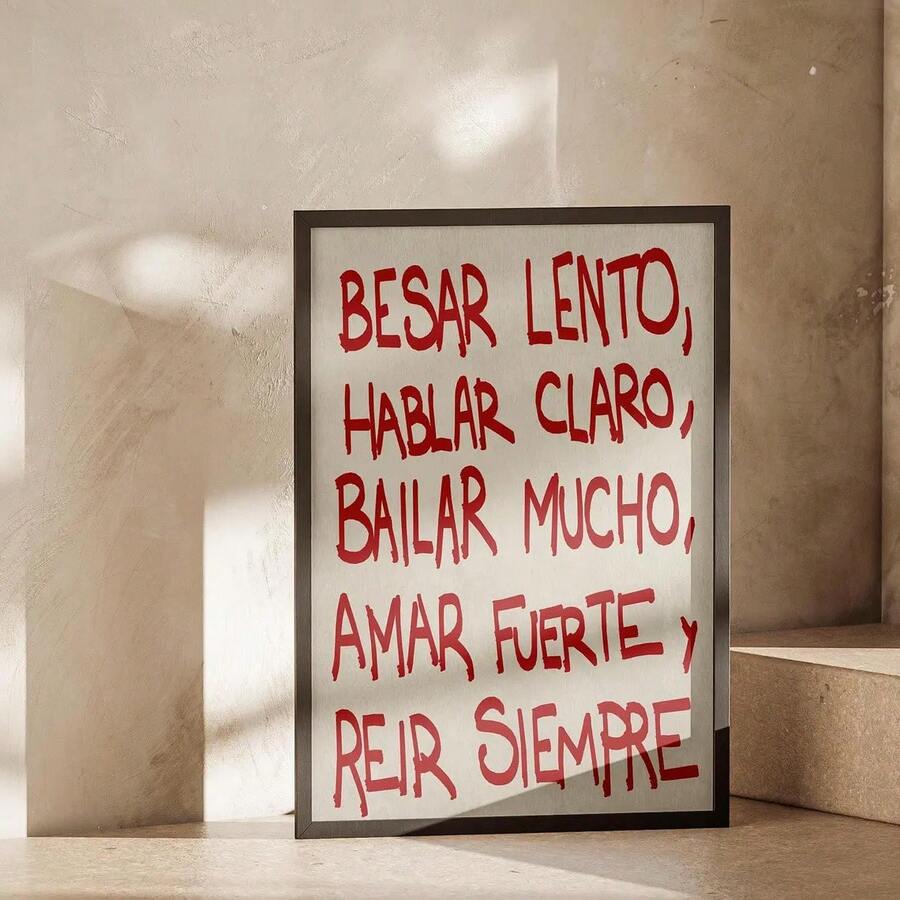 BESAR LENTO,
HABLAR CLARO,
BAILAR MUCHO,
AMAR FUERTE y
REIR SIEMPRE